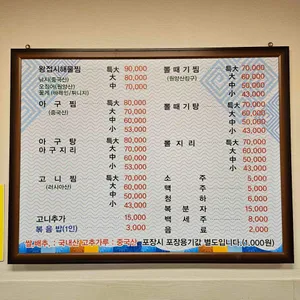 왕접시해물찜 특大 90,000
낙지(중국산) 大 80,000
오징어(원양산) 中 70,000
꽃게(바레인/튀니지) 小 60,000
아구찜 특大 80,000
(중국산) 大 70,000
中 60,000
小 53,000
아구탕 특大 80,000
아구지리 大 70,000
中 60,000
小 53,000
고니찜 특大 70,000
(러시아산) 大 60,000
中 50,000
小 43,000
고니추가 15,000
볶음밥(1인) 3,000
뽈때기찜 특大 70,000
大 60,000
中 50,000
小 43,000
뽈때기탕 특大 70,000
大 60,000
中 50,000
小 43,000
뽈지리 특大 70,000
大 60,000
中 50,000
小 43,000
소주 5,000
맥주 5,000
청하 6,000
복분자 15,000
백세주 8,000
음료 2,000
쌀 배추 : 국내산 고추가루 : 중국산 포장시 포장용기값 별도입니다.(1,000원)